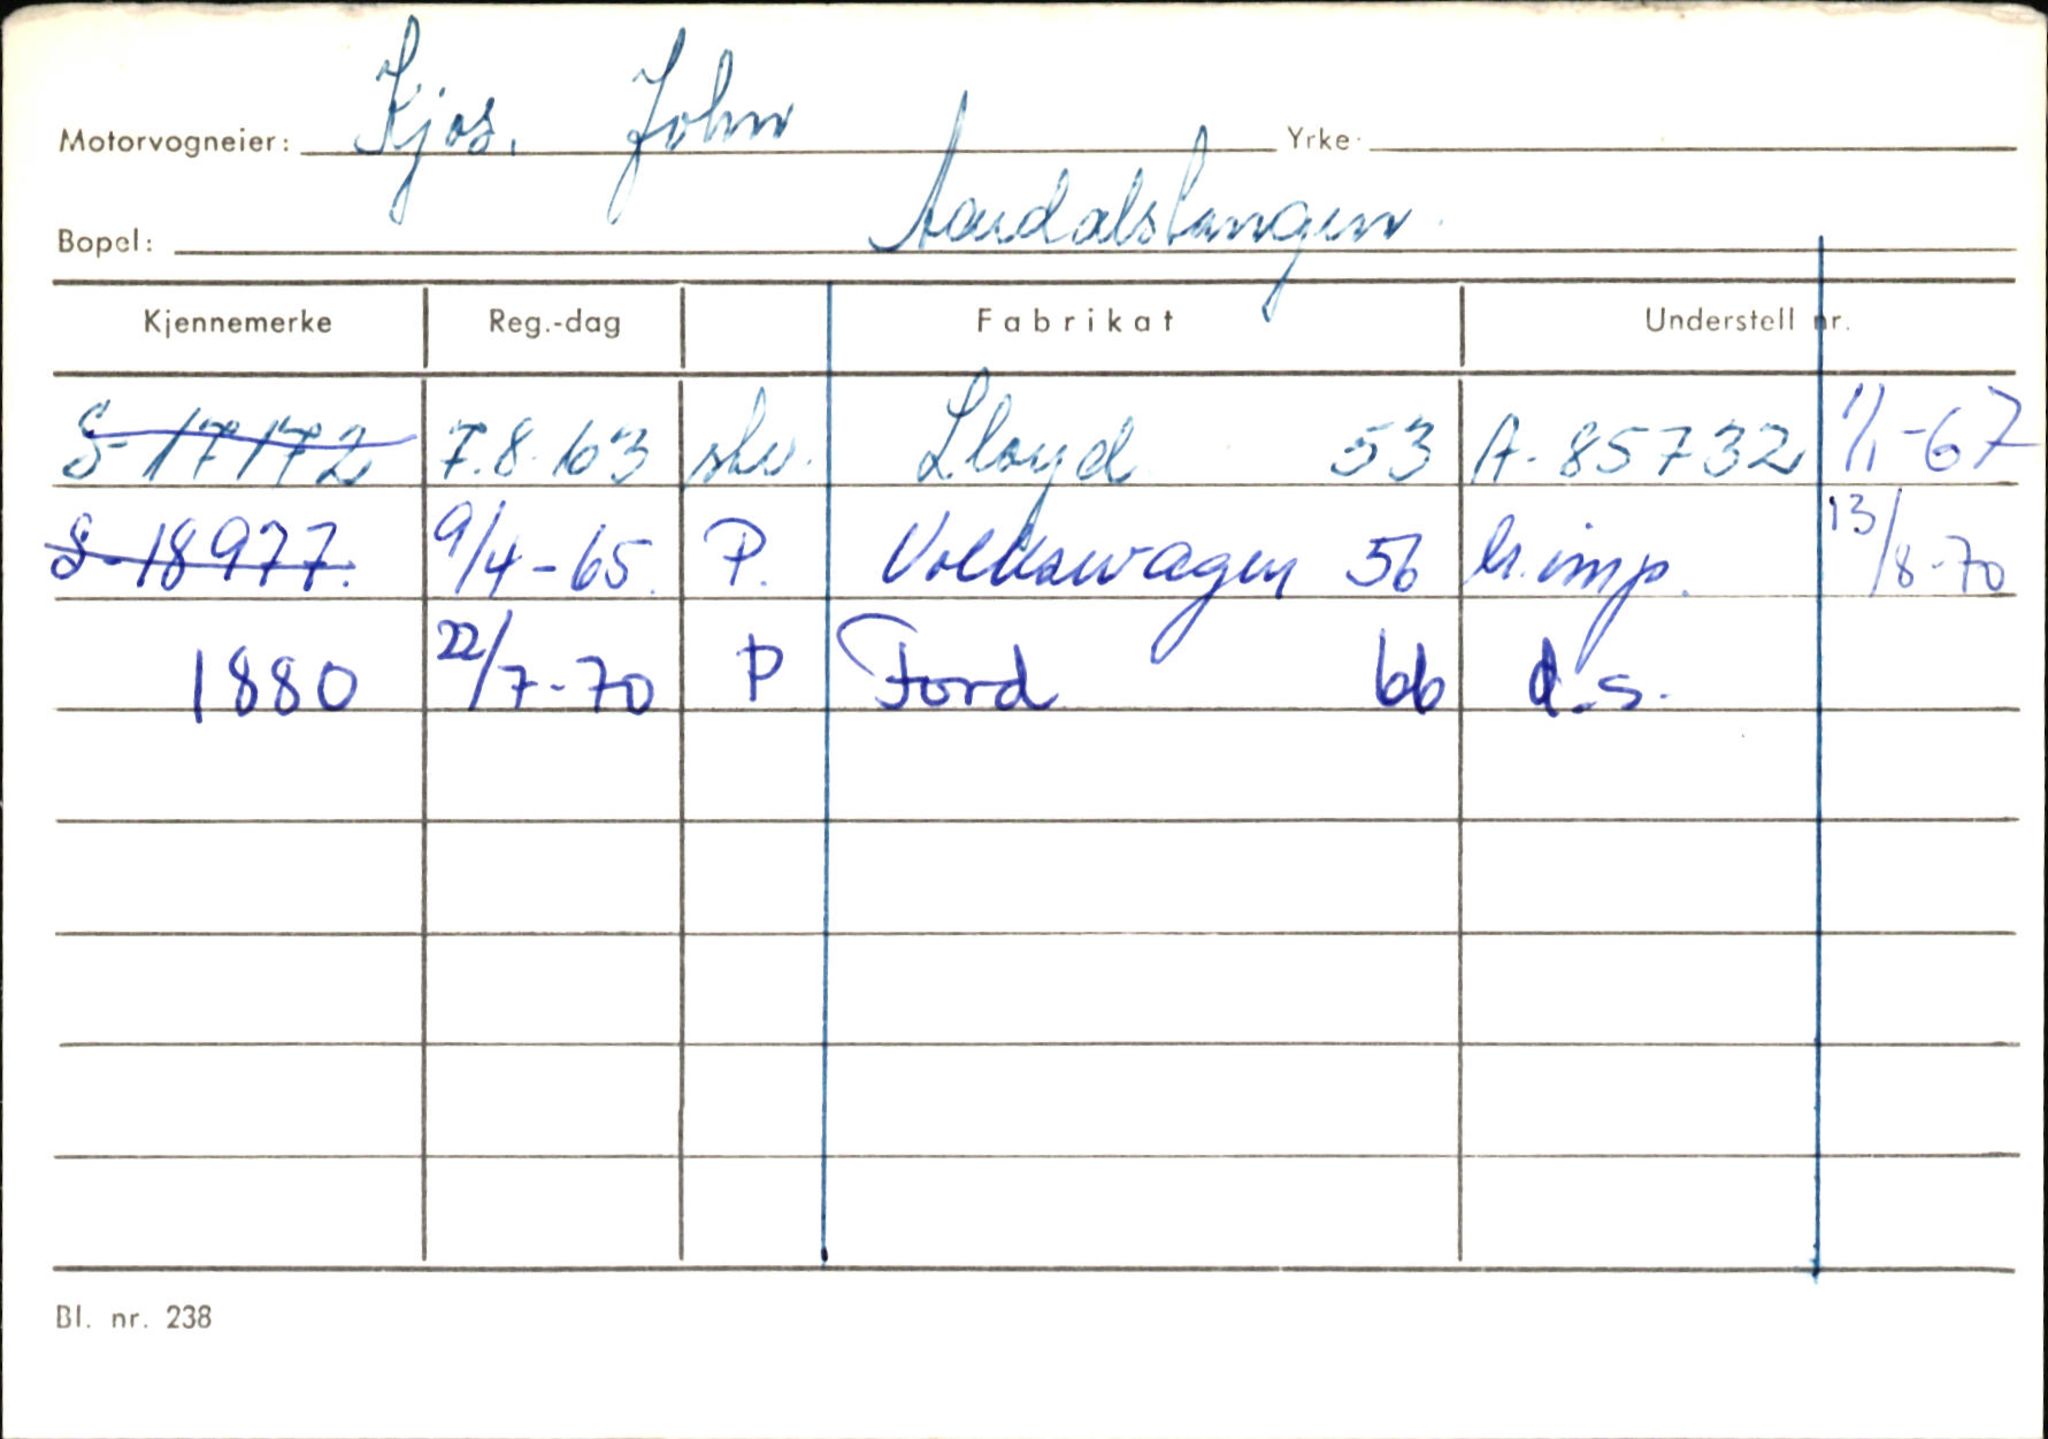 Motorvogneier: Kjos, John Yrke:
Bopel: Aardalstangen
Kjennemerke Reg.-dag Fabrikat Understell nr.
S-17172 7.8.63 stv. Lloyd 53 A-85732 1/1-67
S-18977. 9/4-65. P. Volkswagen 56 br.imp. 13/8-70
1880 22/7-70 P Ford 66 d.s.
Bl. nr. 238